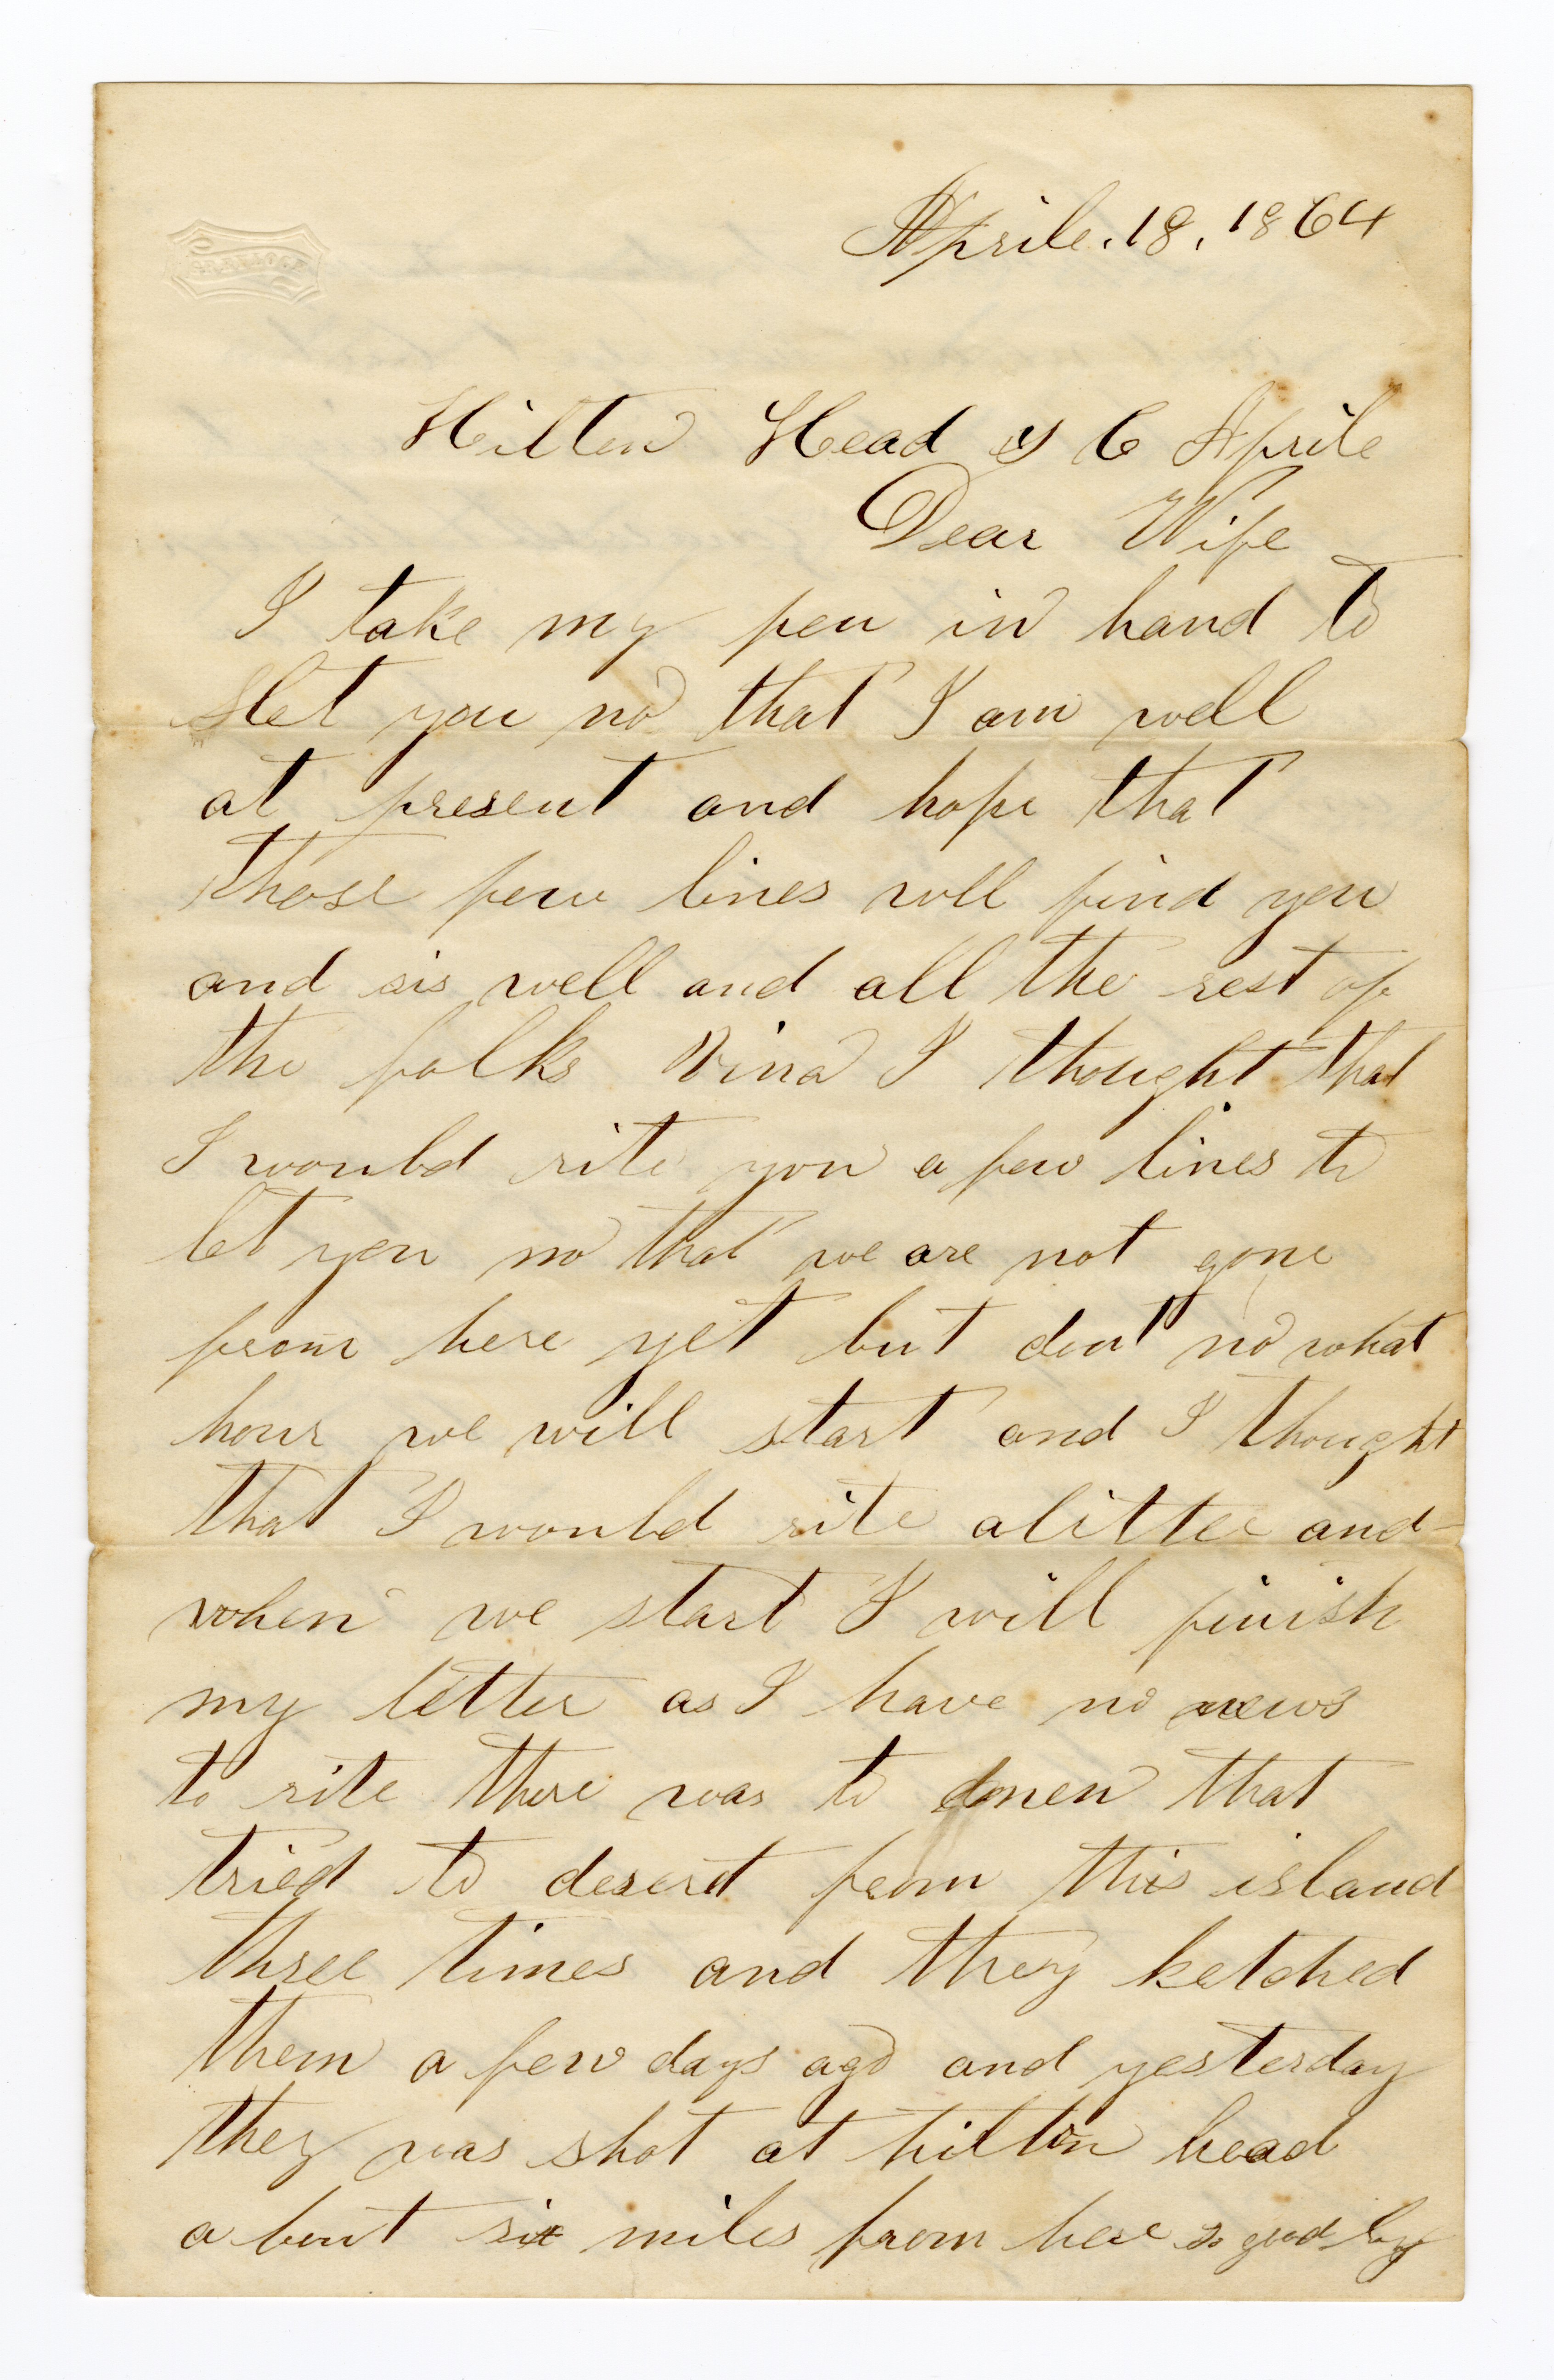 Aprile. 18, 1864
Hilton Head S C Aprile
Dear Wife
I take my pen in hand to
let you no that I am well
at present and hope that
those few lines will find you
and sis well and all the rest of
the folks Vina I thought that
I would rite you a few lines to
let you no that we are not gone
from here yet but dont no what
hour we will start and I thought
that I would rite a litter and
when we start I will finish
my letter as I have no news
to rite there was to men that
tried to desert from this island
three times and they ketched
them a few days ago and yesterday
they was shot at hilton head
a bout six miles from here so good by